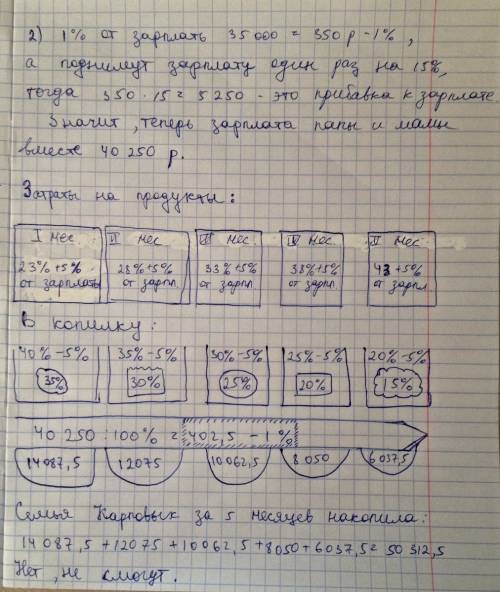 2) 1% от зарплать 35 000 = 350 р - 1%,
а поднимут зарплату один раз на 15%,
тогда 350 · 15 = 5 250 - это прибавка к зарплате
Значит, теперь зарплата папы и мамы
вместе 40 250 р.
Затраты на продукты:
I мес. II мес. III мес. IV мес. II мес.
23%+5% 28%+5% 33%+5% 38%+5% 43+5%
от зарплаты от зарпл. от зарпл. от зарпл. от зарпл.
В копилку:
40%-5% 35%-5% 30%-5% 25%-5% 20%-5%
35% 30% 25% 20% 15%
40 250 : 100% = 402,5 - 1%
14 087,5 12075 10 062,5 8 050 6 037,5
Семья Карповых за 5 месяцев накопила:
14 087,5 + 12075 + 10062,5 + 8050 + 6037,5 = 50 312,5
Нет, не смогут.